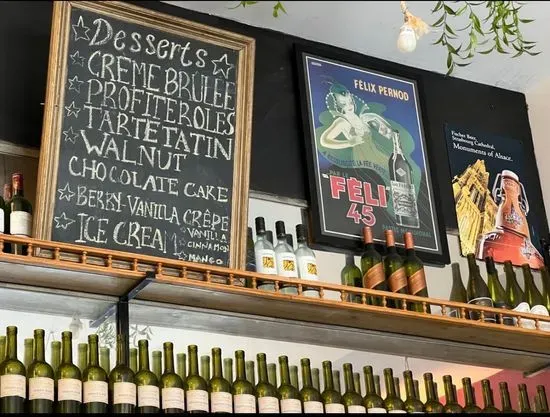 Desserts
CRÈME BRULÉE
PROFITEROLES
TARTE TATIN
WALNUT
CHOCOLATE CAKE
BERRY VANILLA CRÊPE
ICE CREAM
VANILLA
CINNAMON
MANGO
FÉLIX PERNOD
FÉLI
45
Fischer Beer,
Strasbourg Cathedral,
Monuments of Alsace.